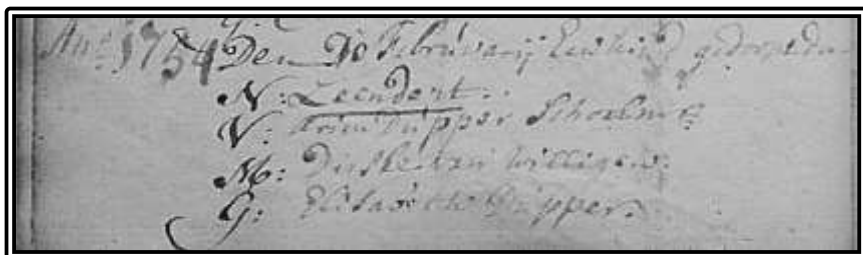 Ano 1754 Den 10 Februarij Een kind gedoopt
N: Leendert:
V: Arien Rupper Schoolmr
M: van Willigen:
G: Elisabeth Rupper.